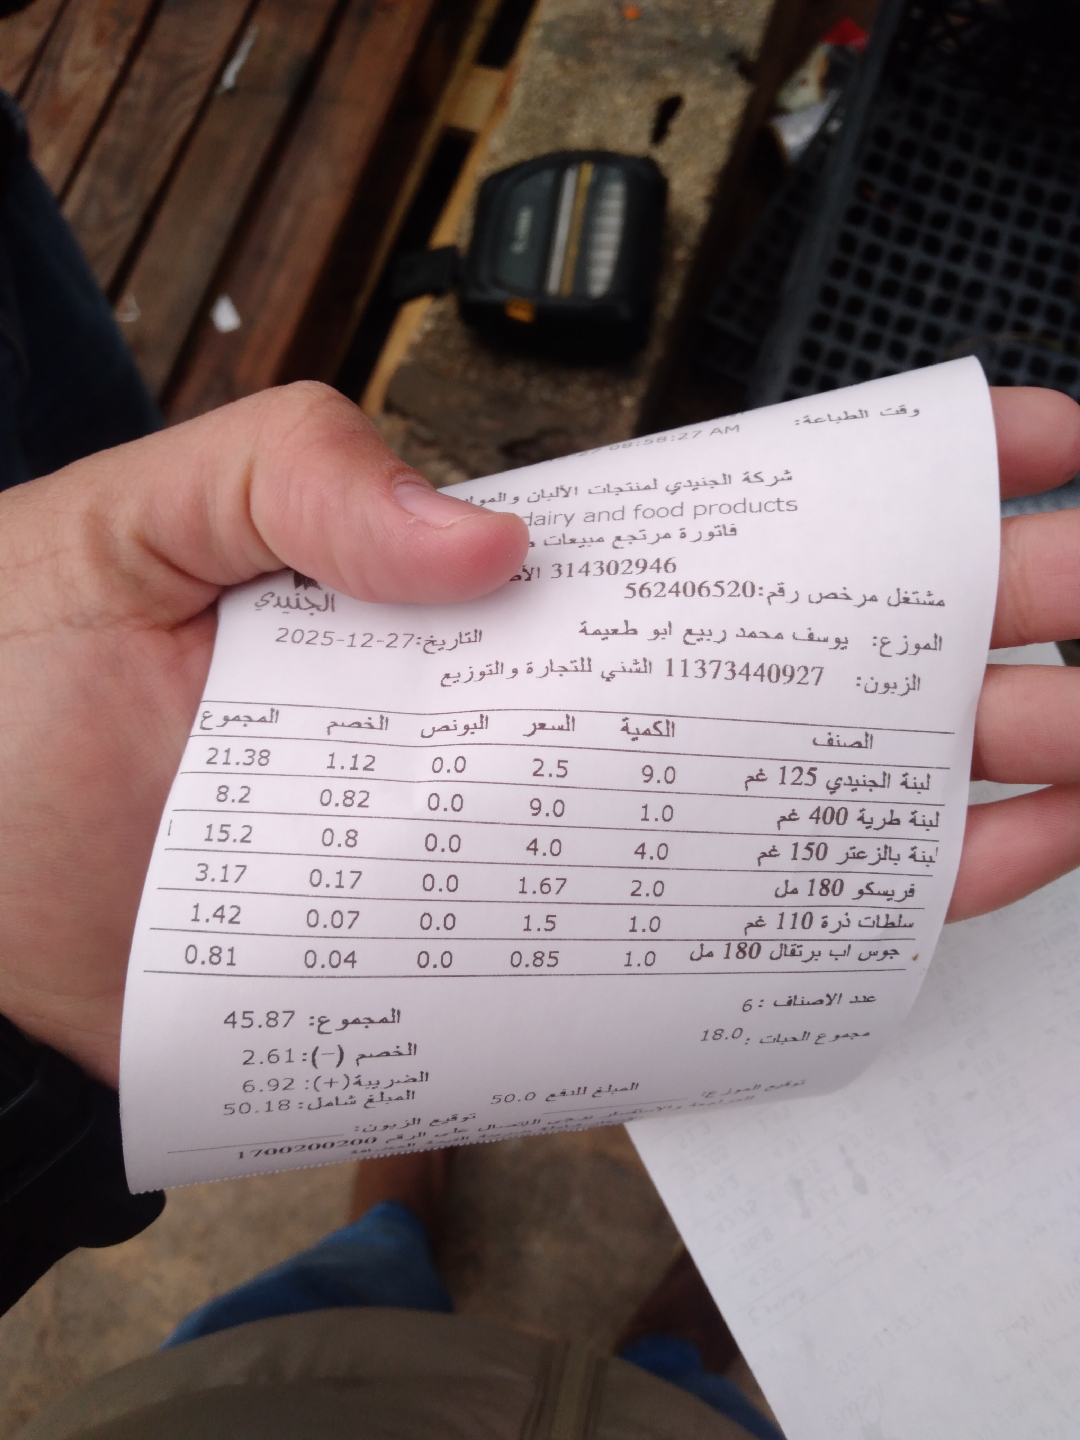 وقت الطباعة:
08:58:27 AM
شركة الجنيدي لمنتجات الألبان و
dairy and food products
فاتورة مرتجع مبيعات
314302946
مشتغل مرخص رقم:562406520
الجنيدي
الموزع: يوسف محمد ربيع ابو طعيمة
التاريخ:2025-12-27
الزبون: 11373440927 الشني للتجارة والتوزيع
الصنف الكمية السعر البونص الخصم المجموع
لبنة الجنيدي 125 غم 9.0 2.5 0.0 1.12 21.38
لبنة طرية 400 غم 1.0 9.0 0.0 0.82 8.2
لبنة بالزعتر 150 غم 4.0 4.0 0.0 0.8 15.2
فريسكو 180 مل 2.0 1.67 0.0 0.17 3.17
سلطات ذرة 110 غم 1.0 1.5 0.0 0.07 1.42
جوس اب برتقال 180 مل 1.0 0.85 0.0 0.04 0.81
عدد الاصناف :6
المجموع: 45.87
مجموع الحبات :18.0
الخصم (-):2.61
الضريبة(+): 6.92
المبلغ شامل: 50.18
المبلغ للدفع 50.0
توقيع الموزع:
توقيع الزبون:
الاتصال على الرقم 1700200200